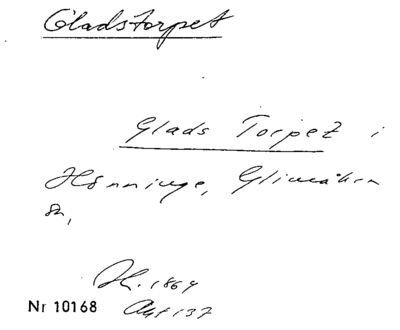 Gladstorpet
Glads Torpet i
Hönninge, Glimåkra
sn,
H. 1864
Nr 10168 Akt 137